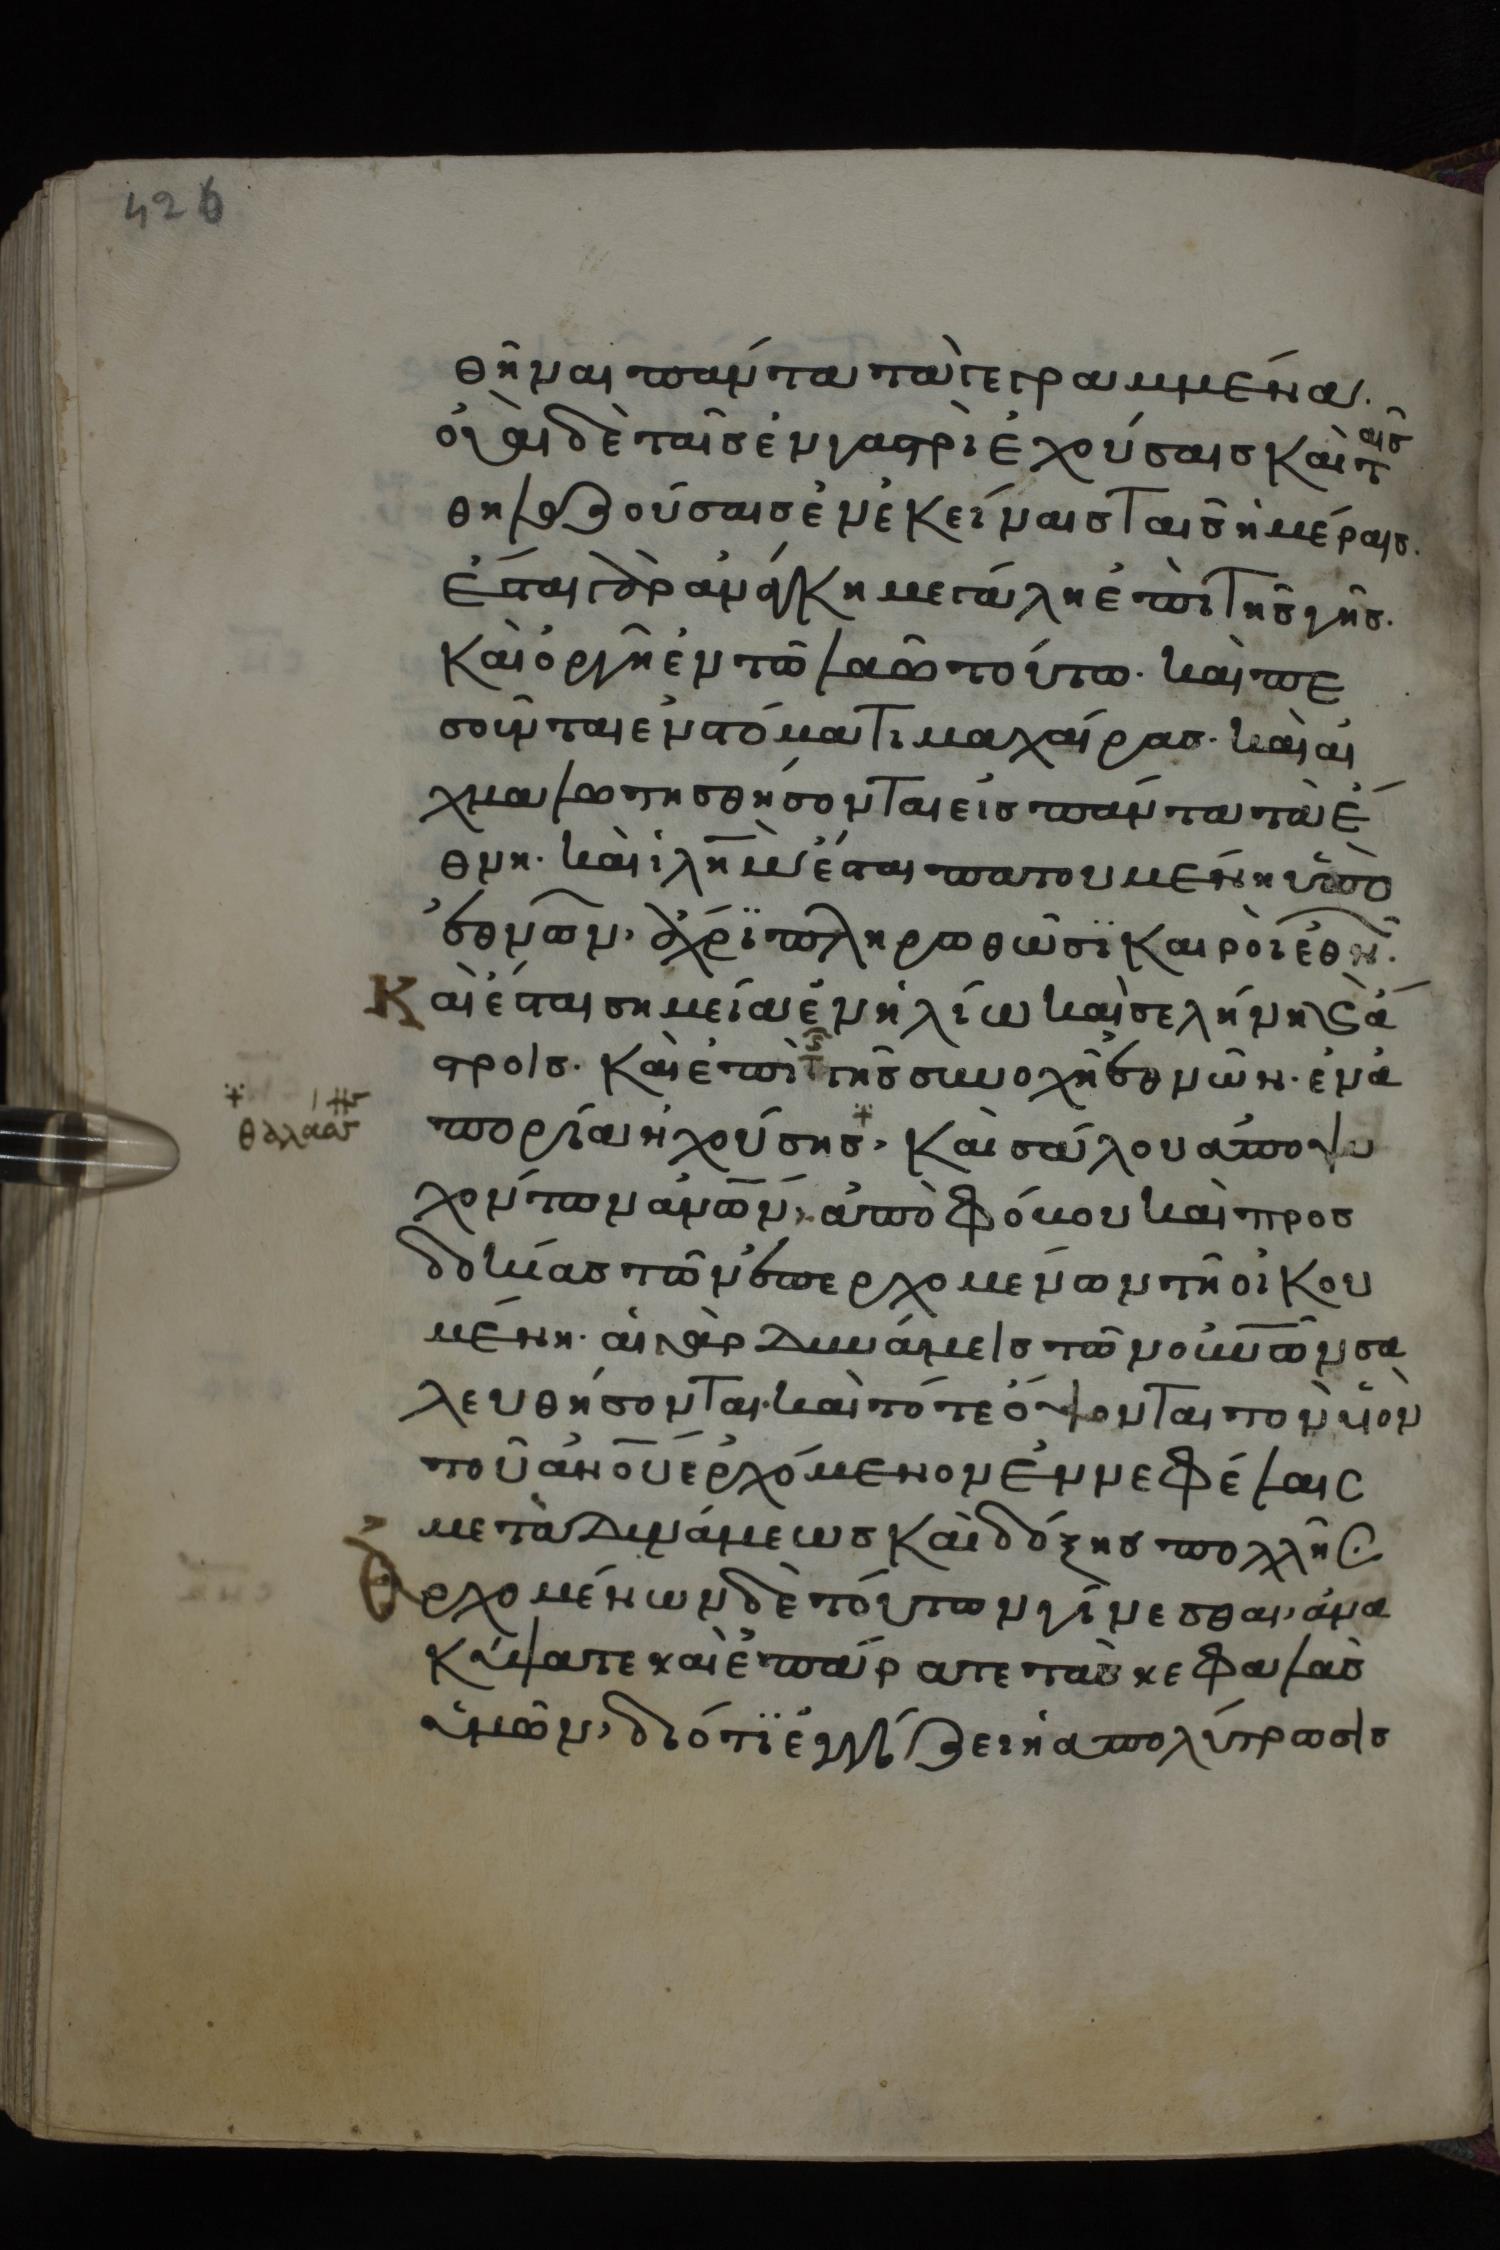 426
θῆναι πάντα τὰ γεγραμμένα.
οὐαὶ δὲ ταῖς ἐν γαστρὶ ἐχούσαις καὶ ταῖς
θηλαζούσαις ἐν ἐκείναις ταῖς ἡμέραις.
ἔσται γὰρ ἀνάγκη μεγάλη ἐπὶ τῆς γῆς.
καὶ ὀργὴ ἐν τῶ λαῶ τούτω. καὶ πε
σοῦνται ἐν στόματι μαχαίρας. καὶ αἰ
χμαλωτισθήσονται εἰς πάντα τὰ ἔ
θνη. καὶ ιλημ ἔσται πατουμένη ὑπὸ
ἐθνῶν, ἄχρι πληρωθῶσι καιροὶ ἐθνῶν.
Καὶ ἔσται σημεῖα ἐν ἡλίω καὶ σελήνη ϛ ἄ
στροις. καὶ ἐπὶ τῆς γῆς συνοχὴ ἐθνῶν. ἐν ἀ
πορία ἠχούσης, καὶ σάλου ἀποψυ
θαλάσσης
χόντων ἀνῶν, ἀπὸ φόβου καὶ προσ
δοκίας τῶν ἐπερχομένων τῆ οἰκου
μένη. αἱ γὰρ δυνάμεις τῶν οὐνῶν σα
λευθήσονται. καὶ τότε ὄψονται τὸν υἱὸν
τοῦ ἀνοῦ ἐρχόμενον ἐν νεφέλαις
μετὰ δυνάμεως καὶ δόξης πολλῆς.
Ἐρχομένων δὲ τούτων γίνεσθαι, ἀνα
κύψατε καὶ ἐπάρατε τὰς κεφαλὰς
ὑμῶν, διότι ἐγγίζει ἡ ἀπολύτρωσις